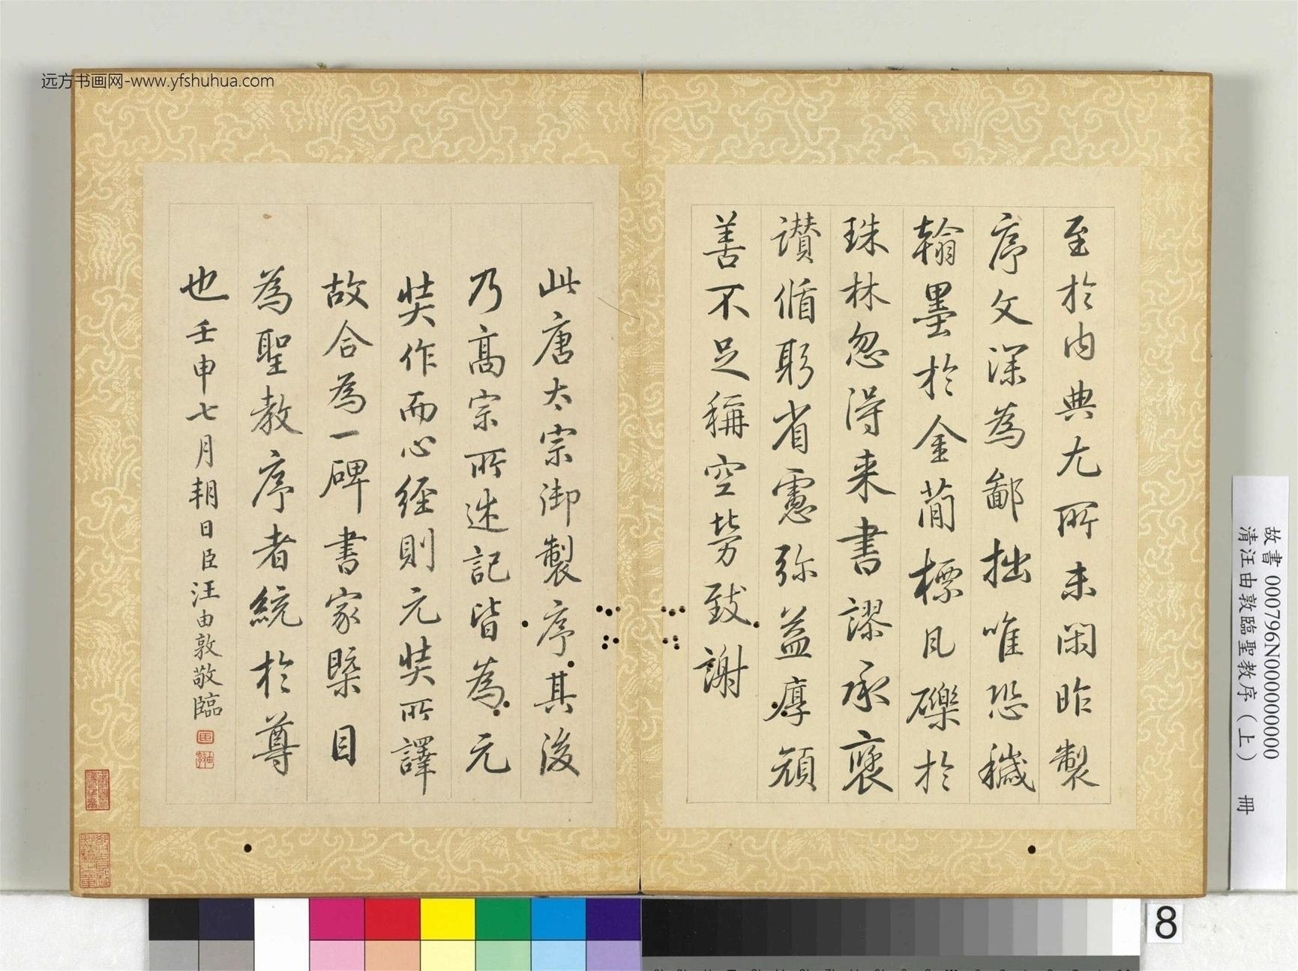 远方书画网-www.yfshuhua.com
至於内典尤所未闲昨製
序文深為鄙拙唯恐穢
翰墨於金蕳標瓦礫於
珠林忽得来書謬承褒
讃循躬省慮弥益厚顔
善不足稱空勞致謝
此唐太宗御製序其後
乃髙宗所述記皆為元
奘作而心經則元奘所譯
故合為一碑書家槩目
為聖教序者統於尊
也壬申七月朔日臣汪由敦敬臨
故書 000796N000000000
清汪由敦臨聖教序（上） 冊
8